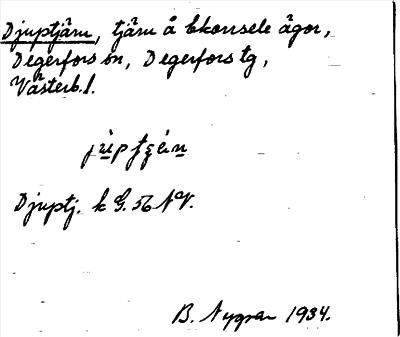 Djuptjärn, tjärn å Ekorrsele ägor,
Degerfors sn, Degerfors tg,
Västerb. l.
Djuptj. k G. 56 NV.
B. Nygren 1934.